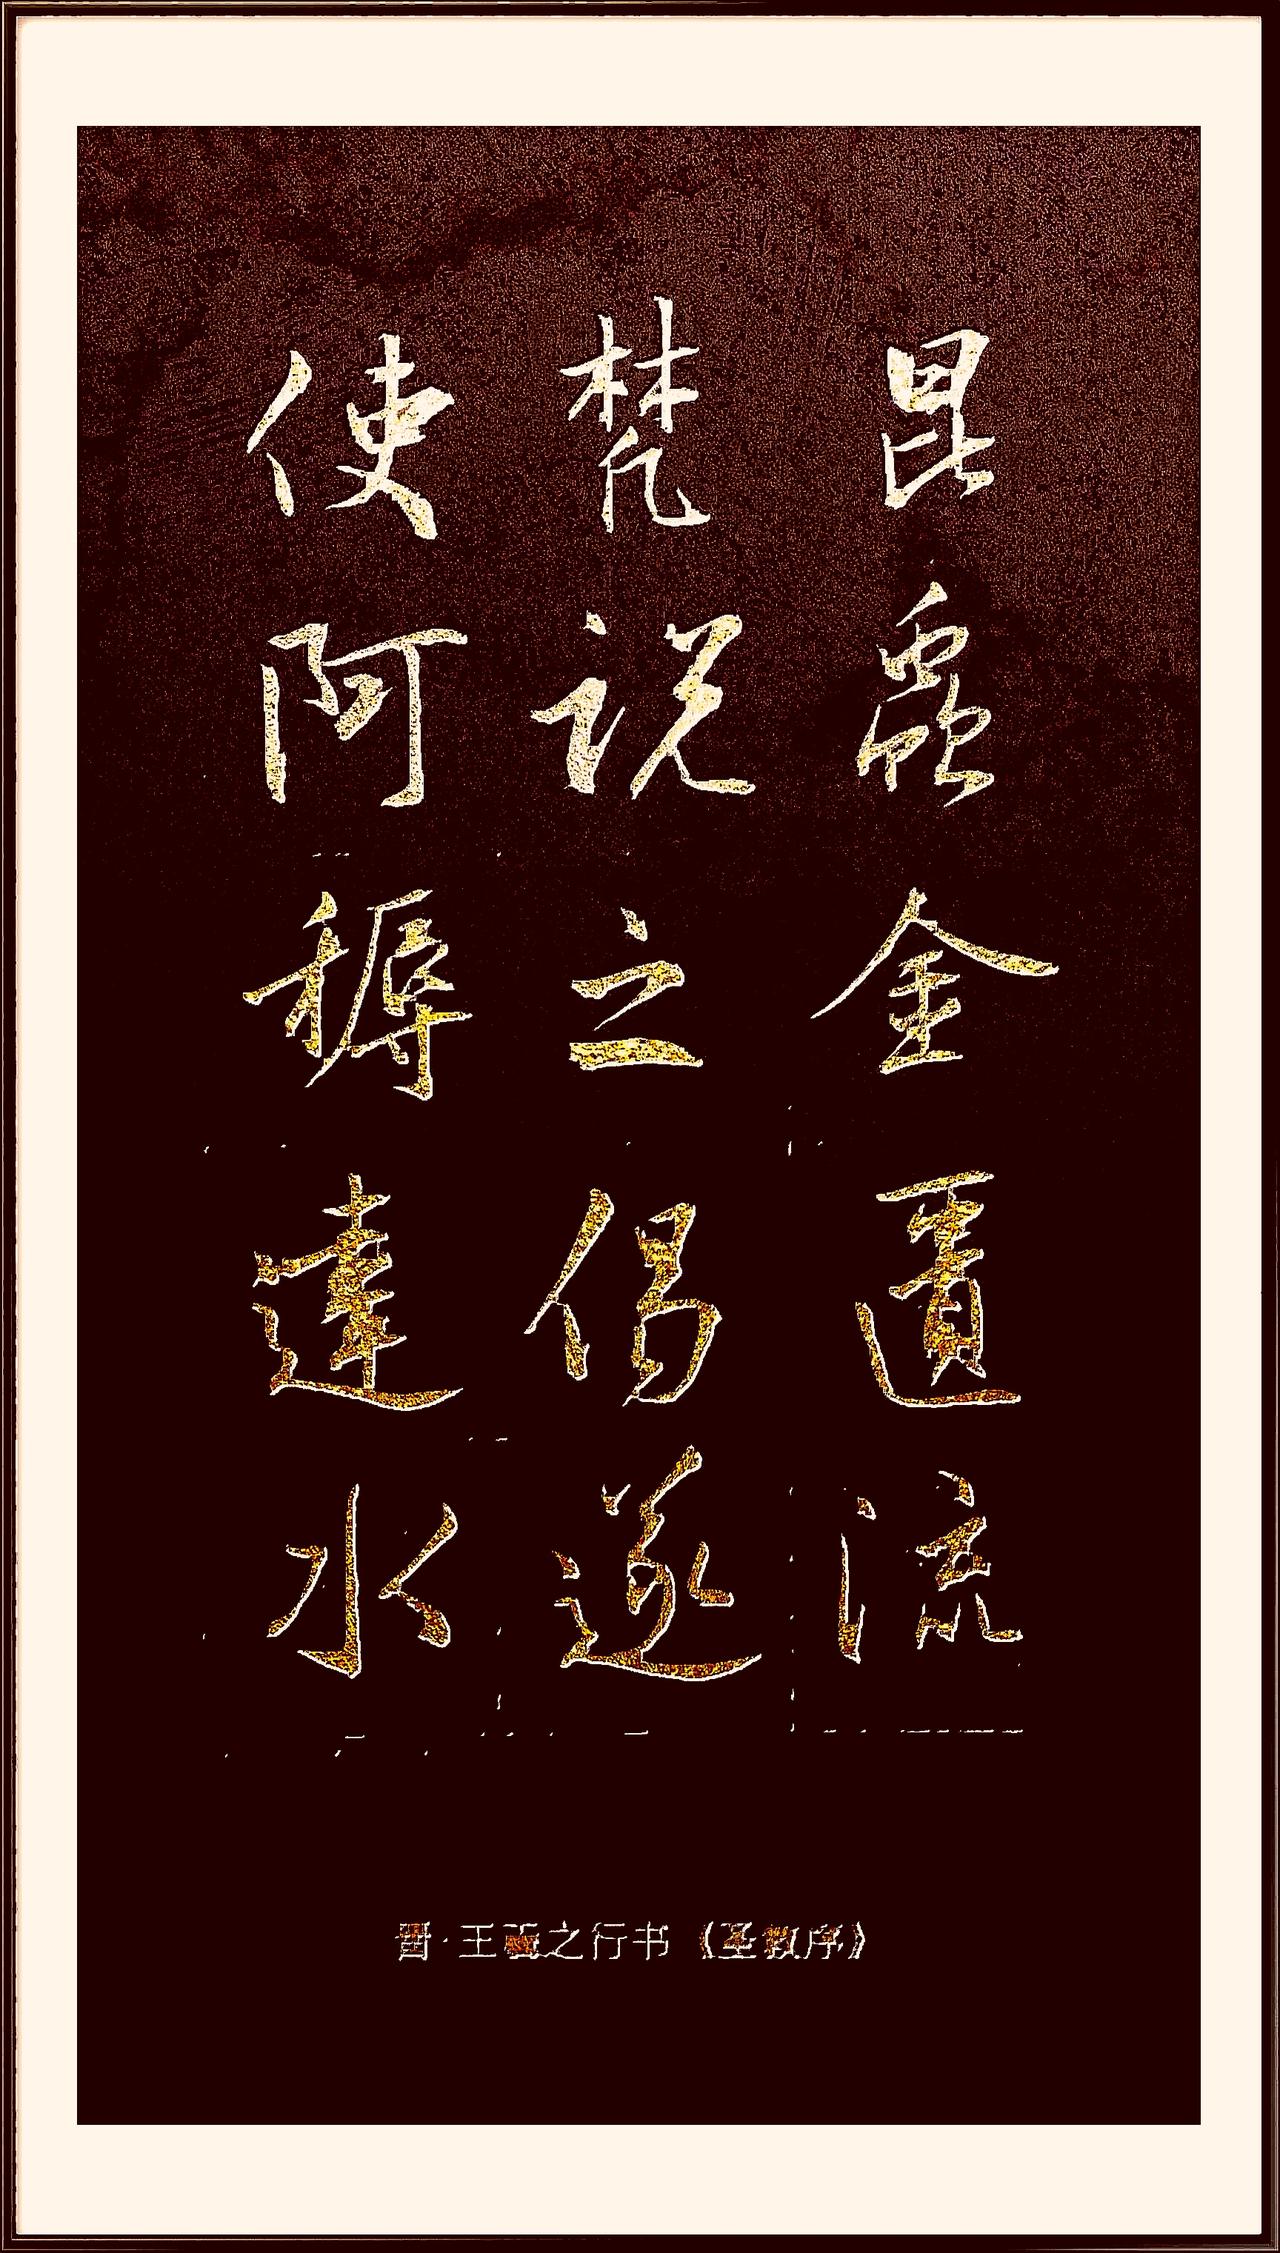 昆蟲金匱流
梵說之偈遂
使阿耨達水
晋·王羲之行书《圣教序》